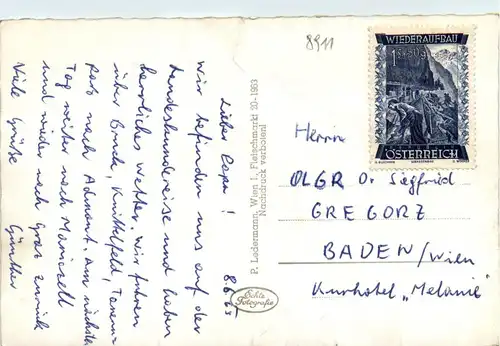 8911
Lieber Papa!
8.6.65
Wir befinden uns auf der
Landeskundereise und haben
herrliches Wetter. Wir fuhren
über Bruck, Knittelfeld, Tauern-
pass nach Admont. Am nächsten
Tag weiter nach Mariazell
und wieder nach Graz zurück
Viele Grüße
Günther
P. Ledermann, Wien I, Fleischmarkt 20 - 1963
Nachdruck verboten!
Echte
Fotografie
WIEDERAUFBAU
ÖSTERREICH
Herrn
OLGR Dr Siegfried
GREGORZ
BADEN/Wien
Kurhotel „Melanie"